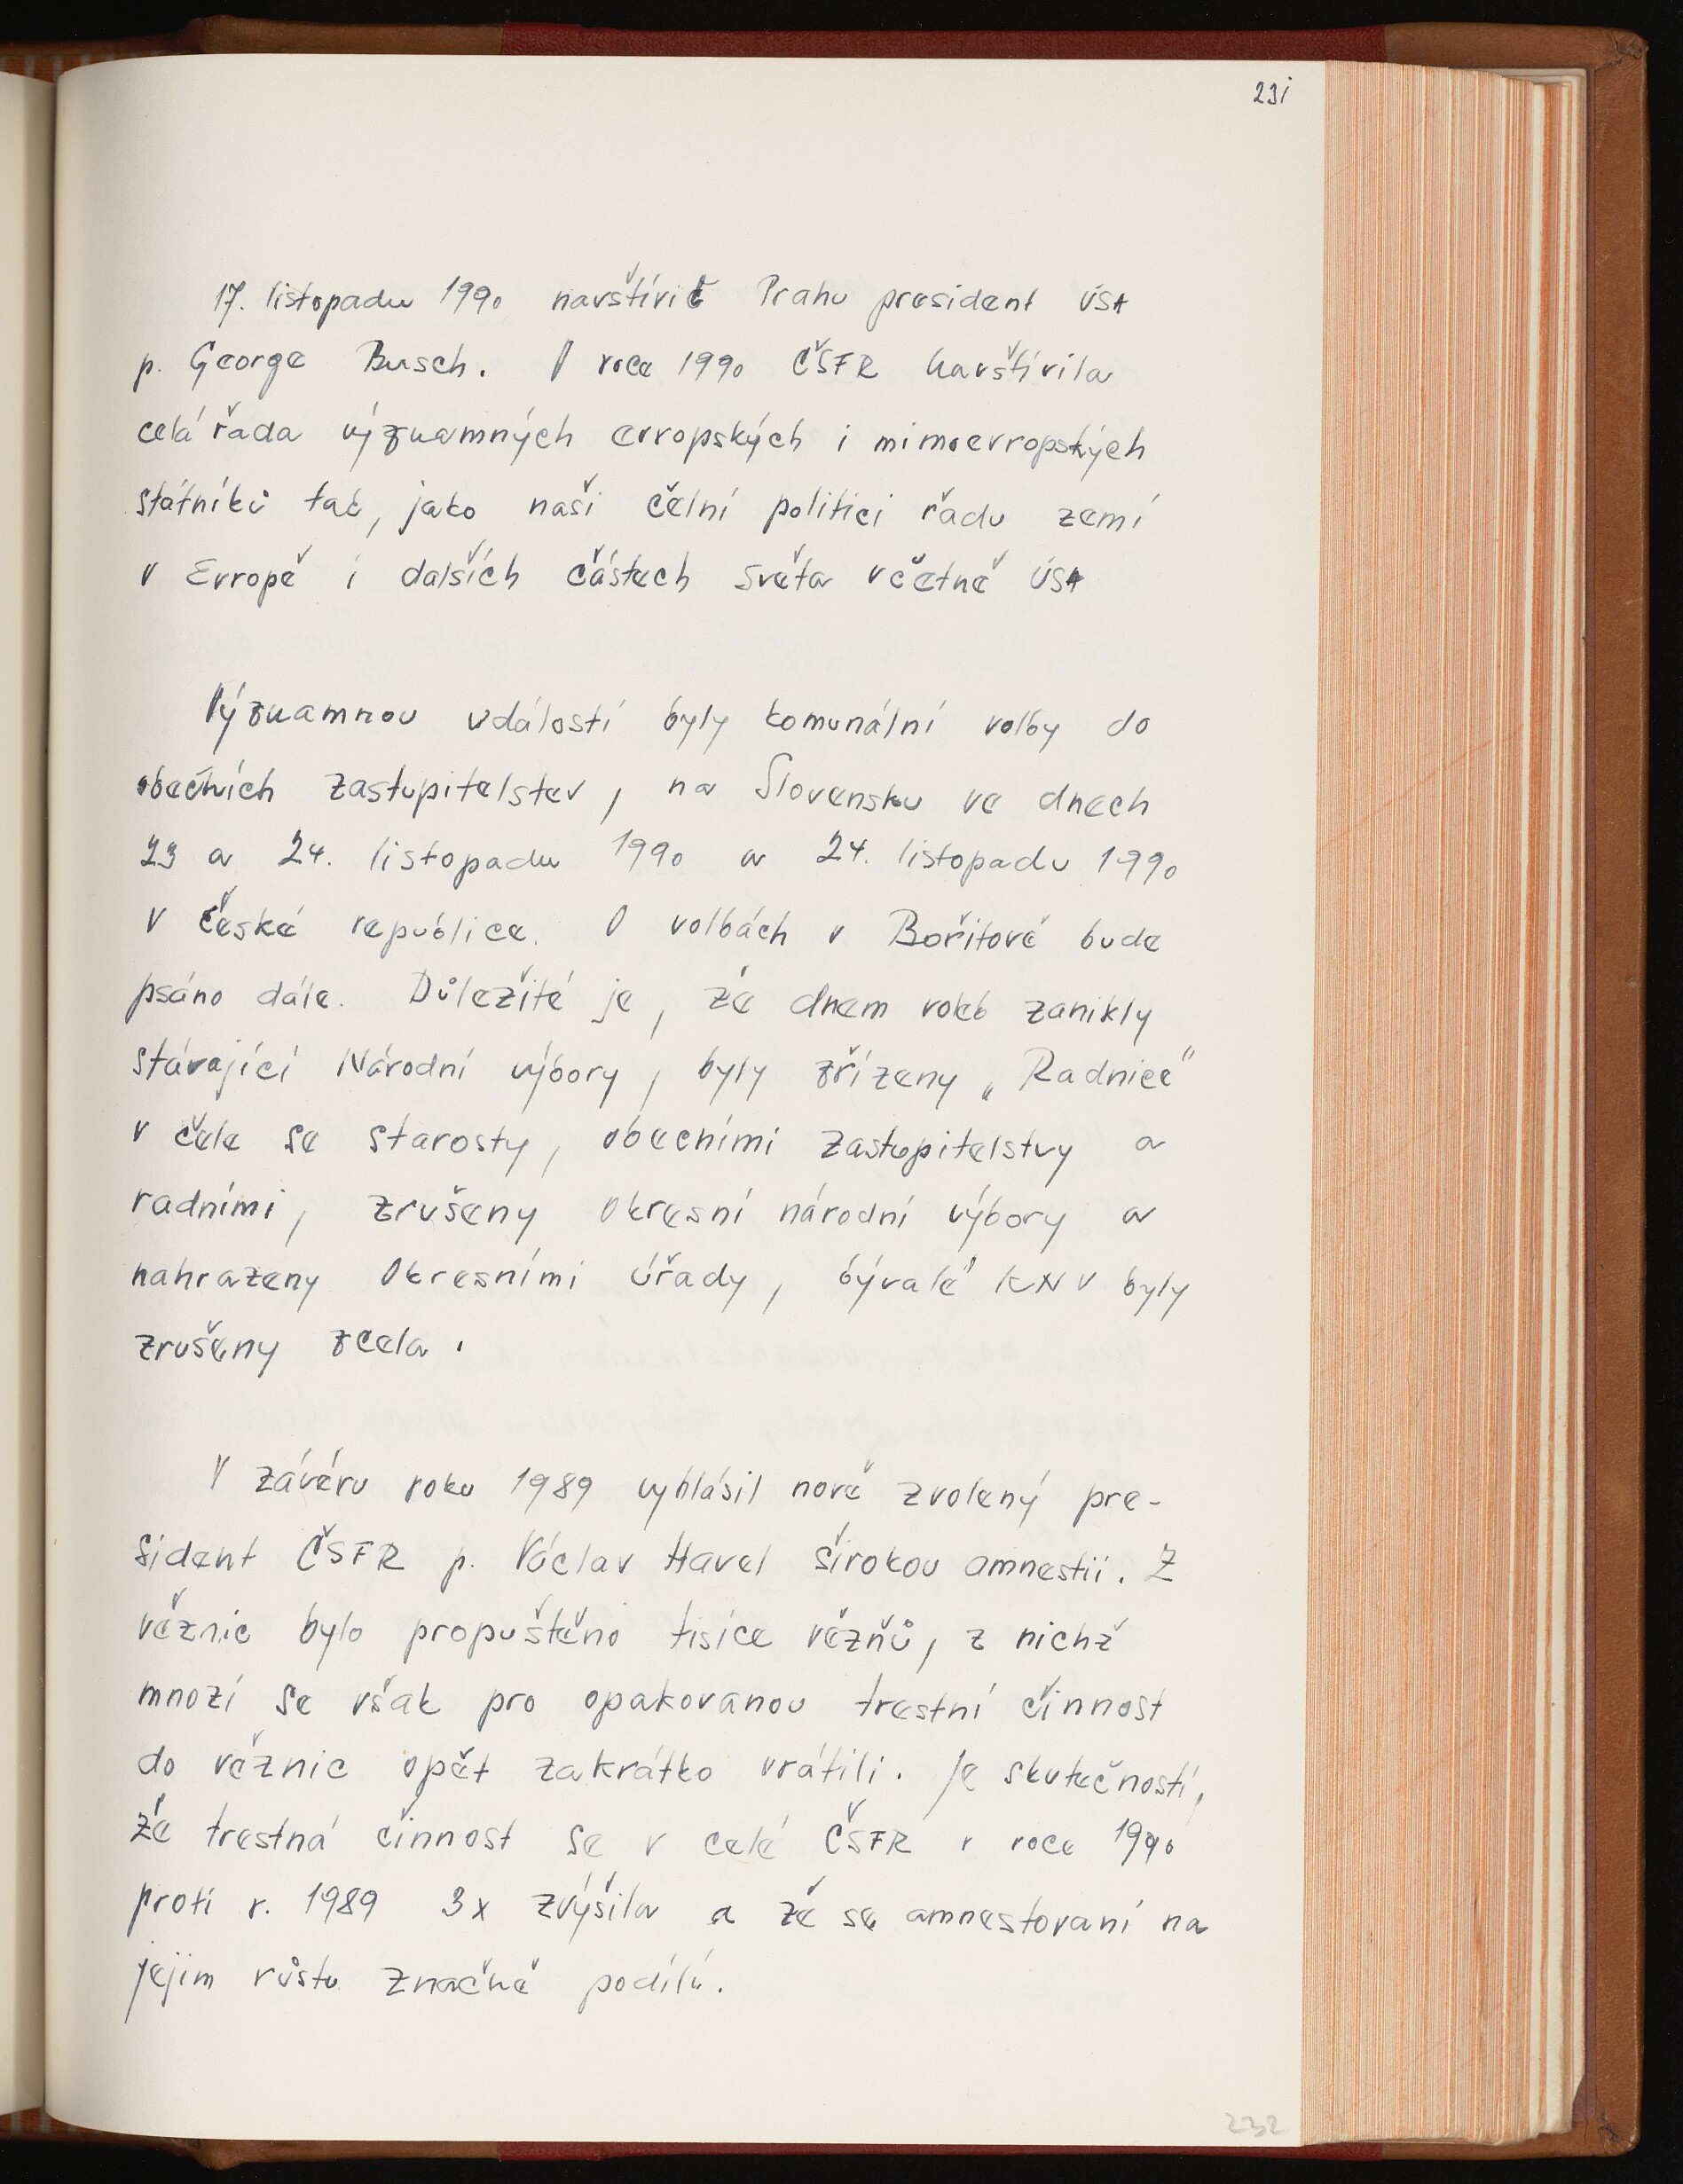 231
17. listopadu 1990 navštívil Prahu president USA
p. George Busch. V roce 1990 ČSFR navštívila
celá řada významných evropských i mimoevropských
státníků tak, jako naši čelní politici řadu zemí
v Evropě i dalších částech světa včetně USA
Významnou událostí byly komunální volby do
obecních zastupitelstev, na Slovensku ve dnech
23 a 24. listopadu 1990 a 24. listopadu 1990
v České republice. O volbách v Bořitově bude
psáno dále. Důležité je, že dnem voleb zanikly
stávající Národní výbory, byly zřízeny „Radnice"
v čele se starosty, obecními zastupitelstvy a
radními, zrušeny Okresní národní výbory a
nahrazeny Okresními úřady, bývalé KNV byly
zrušeny zcela.
V závěru roku 1989 vyhlásil nově zvolený pre-
sident ČSFR p. Václav Havel širokou amnestii. Z
věznic bylo propuštěno tisíce vězňů, z nichž
mnozí se však pro opakovanou trestní činnost
do věznic opět zakrátko vrátili. Je skutečností,
že trestná činnost se v celé ČSFR v roce 1990
proti r. 1989 3x zvýšila a že se amnestovaní na
jejím růstu značně podílí.
232